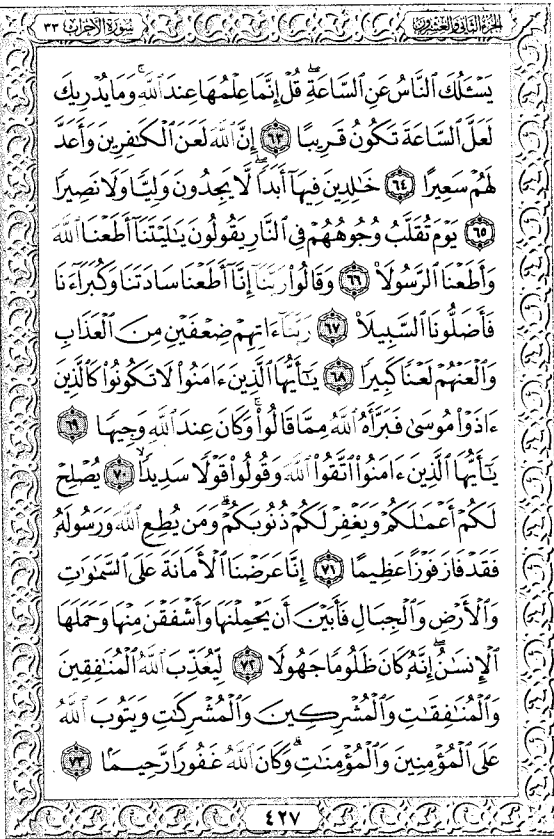 سورة الأحزاب ٣٣
الجزء الثاني والعشرون
يَسْـَٔلُكَ ٱلنَّاسُ عَنِ ٱلسَّاعَةِۖ قُلْ إِنَّمَا عِلْمُهَا عِندَ ٱللَّهِۚ وَمَا يُدْرِيكَ
لَعَلَّ ٱلسَّاعَةَ تَكُونُ قَرِيبًا ٦٣ إِنَّ ٱللَّهَ لَعَنَ ٱلْكَـٰفِرِينَ وَأَعَدَّ
لَهُمْ سَعِيرًا ٦٤ خَـٰلِدِينَ فِيهَآ أَبَدًاۖ لَّا يَجِدُونَ وَلِيًّا وَلَا نَصِيرًا
٦٥ يَوْمَ تُقَلَّبُ وُجُوهُهُمْ فِى ٱلنَّارِ يَقُولُونَ يَـٰلَيْتَنَآ أَطَعْنَا ٱللَّهَ
وَأَطَعْنَا ٱلرَّسُولَا۠ ٦٦ وَقَالُوا۟ رَبَّنَآ إِنَّآ أَطَعْنَا سَادَتَنَا وَكُبَرَآءَنَا
فَأَضَلُّونَا ٱلسَّبِيلَا۠ ٦٧ رَبَّنَآ ءَاتِهِمْ ضِعْفَيْنِ مِنَ ٱلْعَذَابِ
وَٱلْعَنْهُمْ لَعْنًا كَبِيرًا ٦٨ يَـٰٓأَيُّهَا ٱلَّذِينَ ءَامَنُوا۟ لَا تَكُونُوا۟ كَٱلَّذِينَ
ءَاذَوْا۟ مُوسَىٰ فَبَرَّأَهُ ٱللَّهُ مِمَّا قَالُوا۟ۚ وَكَانَ عِندَ ٱللَّهِ وَجِيهًا ٦٩
يَـٰٓأَيُّهَا ٱلَّذِينَ ءَامَنُوا۟ ٱتَّقُوا۟ ٱللَّهَ وَقُولُوا۟ قَوْلًا سَدِيدًا ٧٠ يُصْلِحْ
لَكُمْ أَعْمَـٰلَكُمْ وَيَغْفِرْ لَكُمْ ذُنُوبَكُمْۗ وَمَن يُطِعِ ٱللَّهَ وَرَسُولَهُۥ
فَقَدْ فَازَ فَوْزًا عَظِيمًا ٧١ إِنَّا عَرَضْنَا ٱلْأَمَانَةَ عَلَى ٱلسَّمَـٰوَٰتِ
وَٱلْأَرْضِ وَٱلْجِبَالِ فَأَبَيْنَ أَن يَحْمِلْنَهَا وَأَشْفَقْنَ مِنْهَا وَحَمَلَهَا
ٱلْإِنسَـٰنُۖ إِنَّهُۥ كَانَ ظَلُومًا جَهُولًا ٧٢ لِّيُعَذِّبَ ٱللَّهُ ٱلْمُنَـٰفِقِينَ
وَٱلْمُنَـٰفِقَـٰتِ وَٱلْمُشْرِكِينَ وَٱلْمُشْرِكَـٰتِ وَيَتُوبَ ٱللَّهُ
عَلَى ٱلْمُؤْمِنِينَ وَٱلْمُؤْمِنَـٰتِۗ وَكَانَ ٱللَّهُ غَفُورًا رَّحِيمًۢا ٧٣
٤٢٧